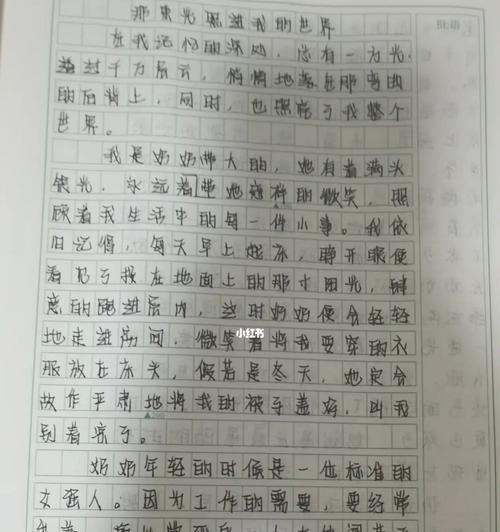 那束光照进我的世界
批语
在我记忆的深处，总有一方光，
穿过千万层云，悄悄地落在那弯曲
的后背上，同时，也照亮了我整个
世界。
我是奶奶带大的，她有着满头
银光，永远着带她慈祥的微笑，照
顾着我生活中的每一件小事。我依
旧记得，每天早上起床，睁开眼便
看扔了投在地面上的那寸阳光，肆
意的跑进屋内，这时奶奶便会轻轻
地走进房间，微笑着将我要穿的衣
服放在床头，假若是冬天，她定会
故作严肃地将我的被子盖好，叫我
别着凉了。
奶奶年轻的时候是一位标准的
女强人。因为工作的需要，要经常
小红书